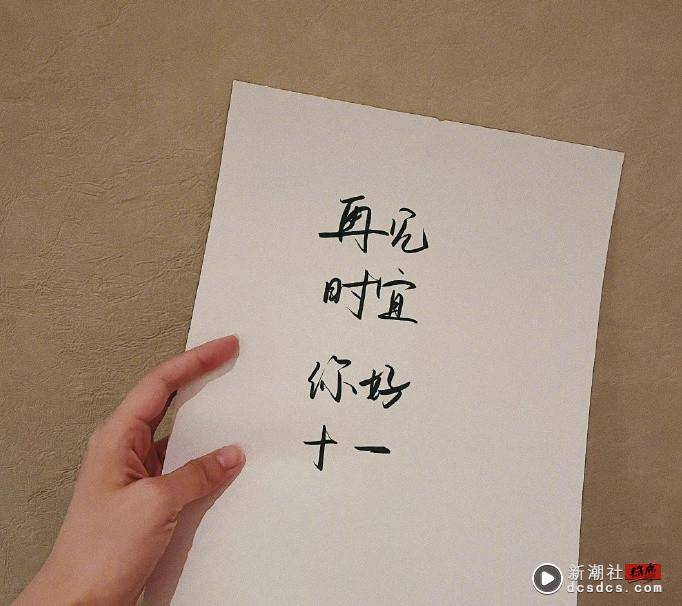 再见
时宜
你好
十一
新潮社
dcsdcs.com